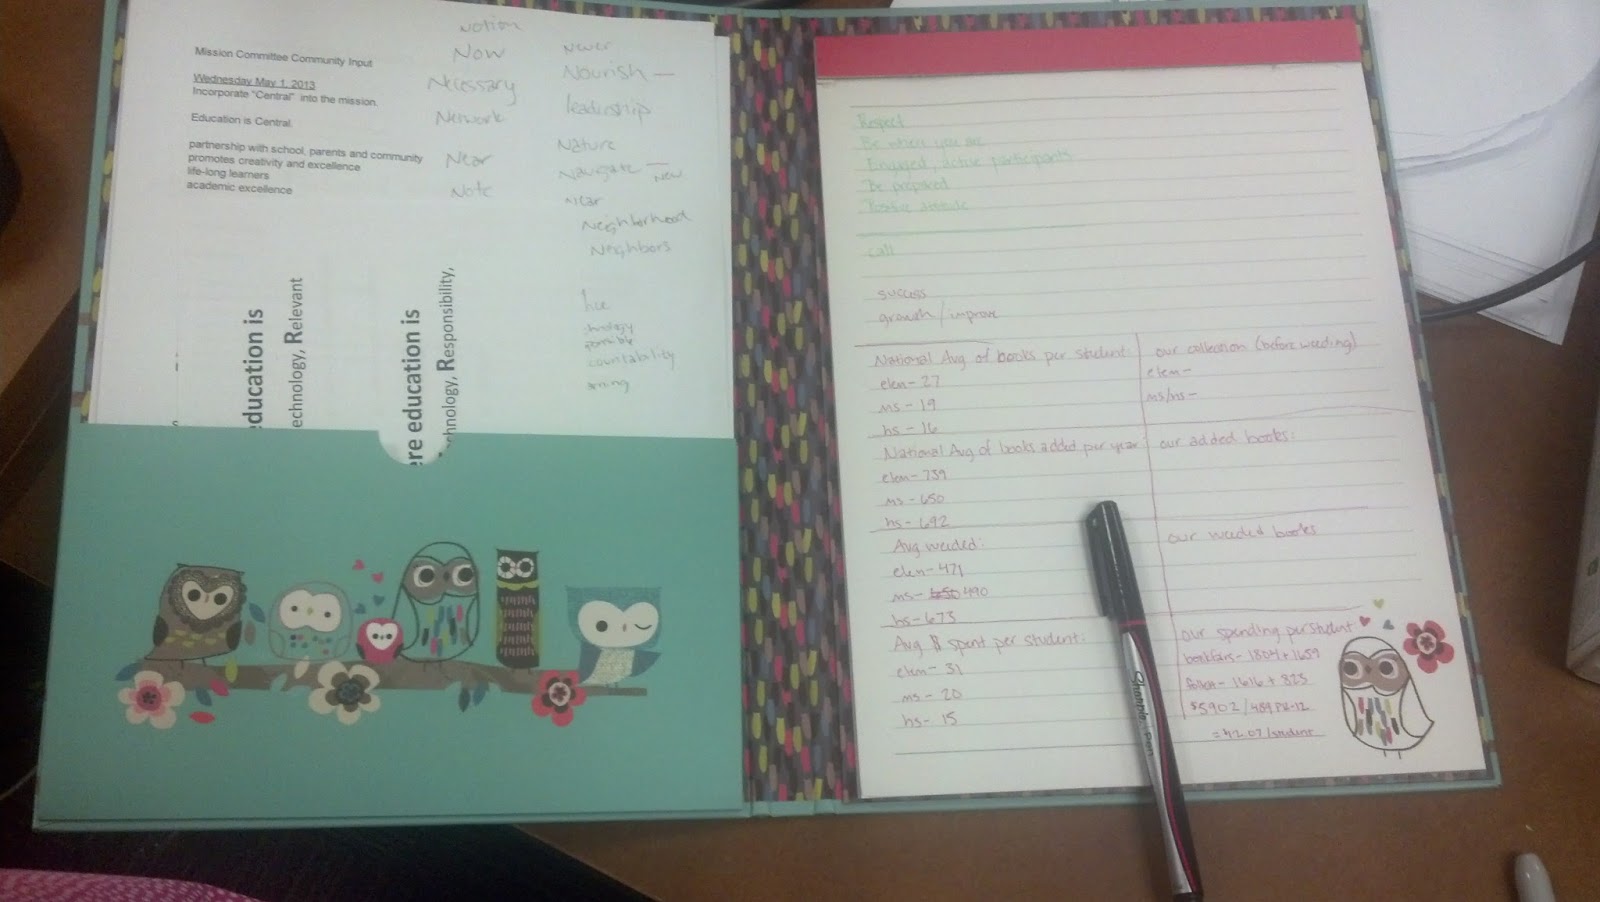 Mission Committee Community Input
Wednesday May 1, 2013
Incorporate "Central" into the mission.
Education is Central.
partnership with school, parents and community
promotes creativity and excellence
life-long learners
academic excellence
Notion
Now
Necessary
Network
Near
Note
Newer
Nourish —
leadership
Nature
Navigate —
New
Near
Neighborhood
Neighbors
hnology
possible
countability
arning
education is
echnology, Relevant
ere education is
chnology, Responsibility,
Respect
Be where you are
Engaged, active participants
Be prepared
Positive attitude
call
success
growth/improve
National Avg of books per student:
elem- 27
ms - 19
hs - 16
our collection (before weeding)
elem-
ms/hs-
National Avg of books added per year:
elem- 739
ms - 650
hs - 692
our added books:
Avg weeded:
elem- 471
ms- 490
hs- 673
our weeded books
Avg $ spent per student:
elem- 31
ms - 20
hs- 15
our spending per student
bookfairs- 1804 + 1659
follett- 1616 + 823
$5902/489 PK-12
/student
Sharpie pen